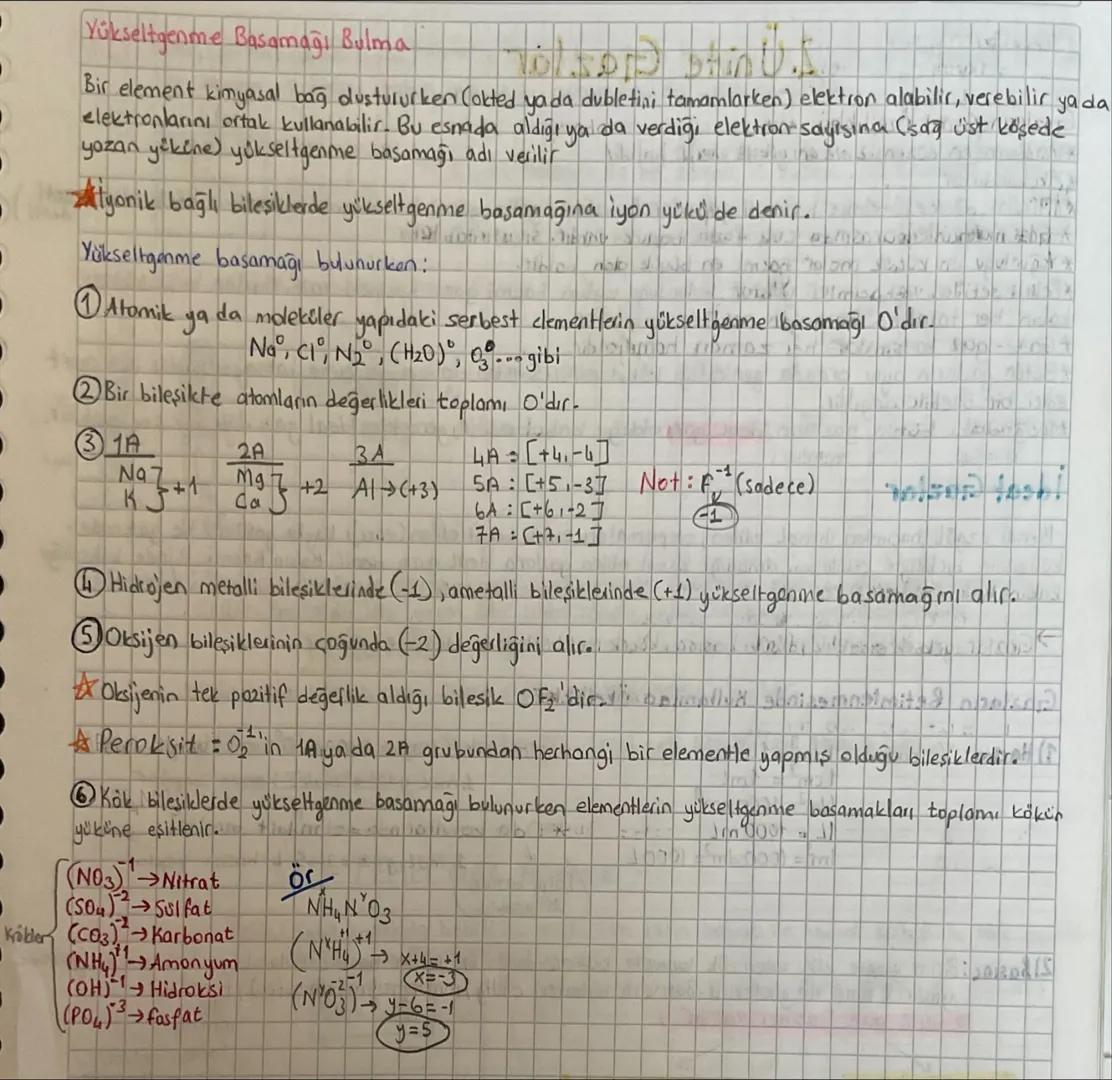 Yükseltgenme Basamağı Bulma
Bir element kimyasal bağ oluştururken (okted ya da dubletini tamamlarken) elektron alabilir, verebilir ya da
elektronlarını ortak kullanabilir. Bu esnada aldığı ya da verdiği elektron sayısına (sağ üst köşede
yazan yüküne) yükseltgenme basamağı adı verilir
☆İyonik bağlı bileşiklerde yükseltgenme basamağına iyon yükü de denir.
Yükseltgenme basamağı bulunurken:
① Atomik ya da moleküler yapıdaki serbest elementlerin yükseltgenme basamağı 0'dır.
Na⁰, Cl⁰, N₂⁰, (H2O)⁰, O₃⁰... gibi
② Bir bileşikte atomların değerlikleri toplamı 0'dır.
③ 1A Na K } +1 2A Mg Ca } +2 3A Al → (+3)
4A = [+4,-4]
5A : [+5,-3] Not : F⁻¹ (sadece)
6A : [+6,-2] -1
7A : [+7,-1]
④ Hidrojen metalli bileşiklerinde (-1), ametalli bileşiklerinde (+1) yükseltgenme basamağını alır.
⑤ Oksijen bileşiklerinin çoğunda (-2) değerliğini alır.
☆ Oksijenin tek pozitif değerlik aldığı bileşik OF₂'dir.
☆ Peroksit = O₂⁻¹'in 1A ya da 2A grubundan herhangi bir elementle yapmış olduğu bileşiklerdir.
⑥ Kök bileşiklerde yükseltgenme basamağı bulunurken elementlerin yükseltgenme basamakları toplamı kökün
yüküne eşitlenir.
Kökler
(NO₃)⁻¹ → Nitrat
(SO₄)⁻² → Sülfat
(CO₃)⁻² → Karbonat
(NH₄)⁺¹ → Amonyum
(OH)⁻¹ → Hidroksi
(PO₄)⁻³ → fosfat
Ör
NˣH₄NʸO₃
(NˣH₄⁺¹)⁺¹ → x+4=+1
x=-3
(NʸO₃⁻²)⁻¹ → y-6=-1
y=5